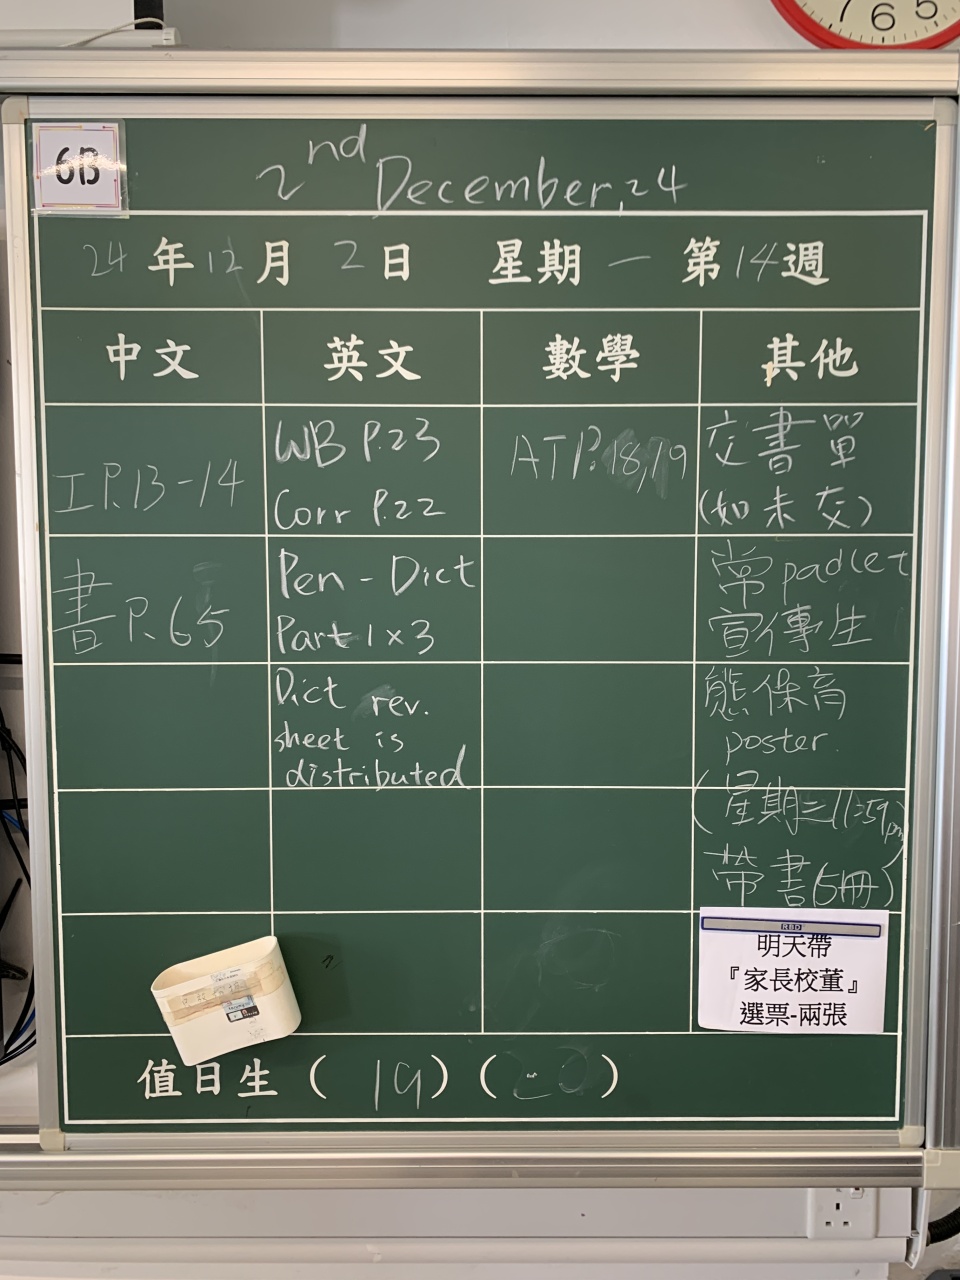 7 6 5
6B
2nd December, 24
24年12月2日 星期一 第14週
中文 英文 數學 其他
工P.13-14
書P.65
WB P.23
Corr P.22
Pen - Dict
Part 1 x 3
Dict rev.
sheet is
distributed
AT P.18,19
交書單
(如未交)
常padlet
宣傳生
態保育
poster.
(星期三11:59pm)
帶書(5冊)
RBD
明天帶
『家長校董』
選票-兩張
值日生 ( 19 ) ( 20 )